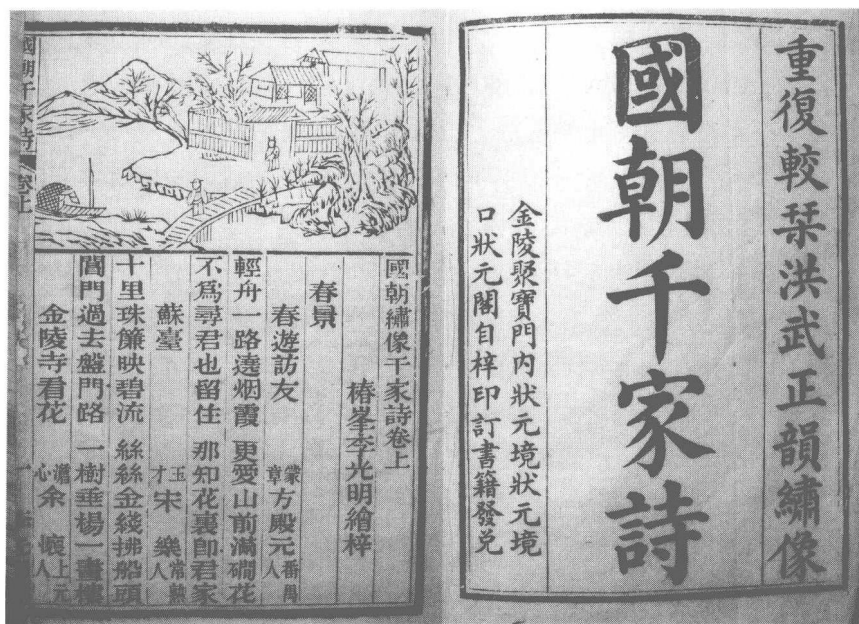 重復較栞洪武正韻繡像
國朝千家詩
金陵聚寶門內狀元境狀元境
口狀元閣自梓印訂書籍發兌
國朝繡像千家詩卷上
椿峯李光明繪梓
春景
春遊訪友 蒙章 方殿元 番禺人
輕舟一路遶烟霞 更愛山前滿磵花
不爲尋君也留住 那知花裏卽君家
蘇臺 玉才 宋樂 常熟人
十里珠簾映碧流 絲絲金綫拂船頭
閶門過去盤門路 一樹垂楊一畫樓
金陵寺看花 澹心 余懷 上元人
國朝千家詩 卷上 一